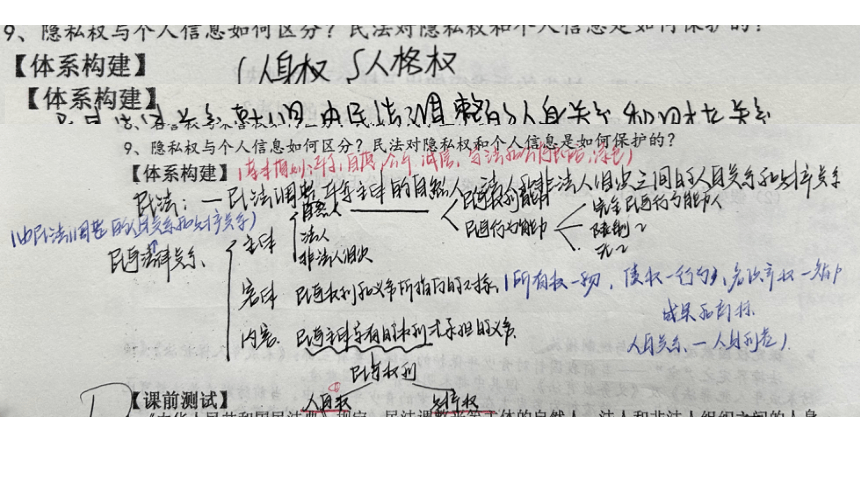 9、隐私权与个人信息如何区分？民法对隐私权和个人信息是如何保护的？
【体系构建】 人身权 人格权
【体系构建】
由民法调整的人身关系和财产关系
9、隐私权与个人信息如何区分？民法对隐私权和个人信息是如何保护的？
【体系构建】
民法：— 民法调整平等主体的自然人、法人和非法人组织之间的人身关系和财产关系
(由民法调整的人身关系和财产关系)
民事法律关系
主体 自然人 民事权利能力
法人 民事行为能力 完全民事行为能力人
非法人组织 限制〃
无〃
客体 民事权利和义务所指向的对象 (所有权—物，债权—行为，知识产权—智力
成果和商标
人身关系—人身利益)
内容 民事主体享有的权利或承担的义务
民事权利
① 人身权 财产权
【课前测试】